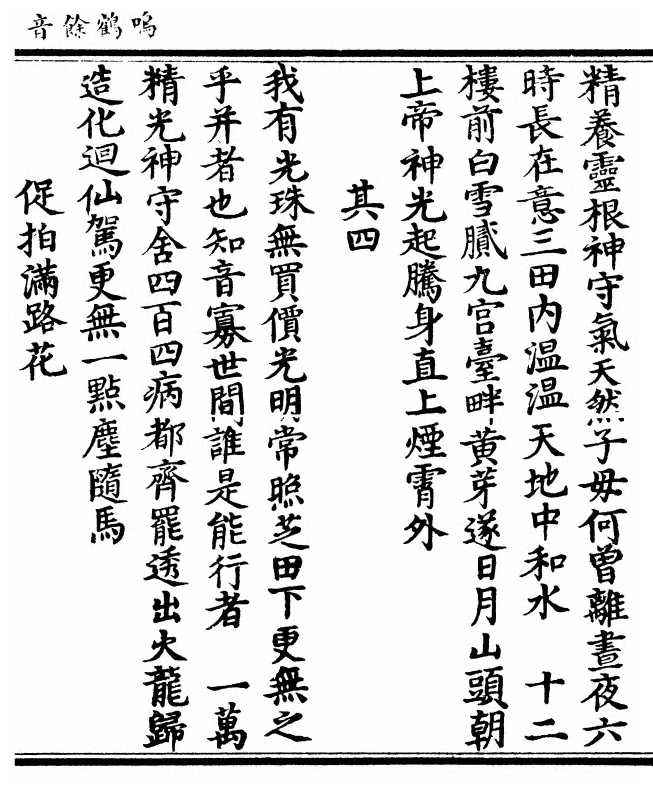 鳴鶴餘音
精養靈根神守氣天然子母何曾離晝夜六
時長在意三田内温温天地中和水　十二
樓前白雪膩九宫臺畔黄芽遂日月山頭朝
上帝神光起騰身直上煙霄外
其四
我有光珠無買價光明常照芝田下更無之
乎并者也知音寡世間誰是能行者　一萬
精光神守舍四百四病都齊罷透出火龍歸
造化迴仙駕更無一點塵隨馬
促拍滿路花